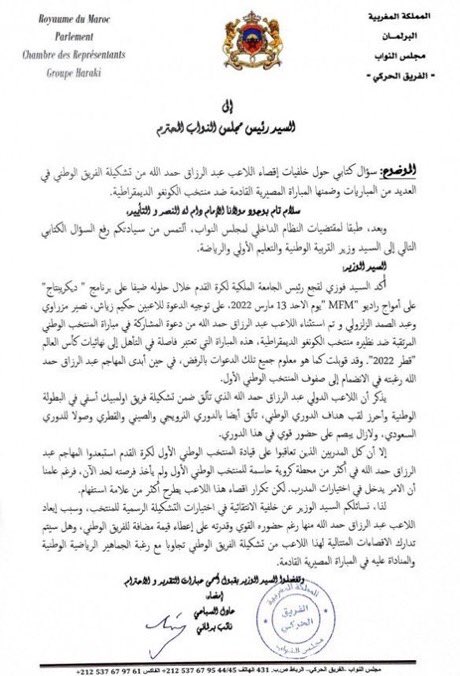 Royaume du Maroc
Parlement
Chambre des Représentants
Groupe Haraki
المملكة المغربية
البرلمان
مجلس النواب
- الفريق الحركي -
إلى
السيد رئيس مجلس النواب المحترم
الموضوع: سؤال كتابي حول خلفيات إقصاء اللاعب عبد الرزاق حمد الله من تشكيلة الفريق الوطني في
العديد من المباريات وضمنها المباراة المصيرية القادمة ضد منتخب الكونغو الديمقراطية.
سلام تام بوجود مولانا الإمام دام له النصر و التأييد،
وبعد، طبقا لمقتضيات النظام الداخلي لمجلس النواب، ألتمس من سيادتكم رفع السؤال الكتابي
التالي إلى السيد وزير التربية الوطنية والتعليم الأولي والرياضة.
السيد الوزير،
أكد السيد فوزي لقجع رئيس الجامعة الملكية لكرة القدم خلال حلوله ضيفا على برنامج " ديكريبتاج"
على أمواج راديو "MFM "يوم الاحد 13 مارس 2022، على توجيه الدعوة للاعبين حكيم زياش، نصير مزراوي
وعبد الصمد الزلزولي و تم استثناء اللاعب عبد الرزاق حمد الله من دعوة المشاركة في مباراة المنتخب الوطني
المرتقبة ضد نظيره منتخب الكونغو الديمقراطية، هذه المباراة التي تعتبر فاصلة في التأهل إلى نهائيات كأس العالم
"قطر 2022". وقد قوبلت كما هو معلوم جميع تلك الدعوات بالرفض، في حين أبدى المهاجم عبد الرزاق حمد
الله رغبته في الانضمام إلى صفوف المنتخب الوطني الأول.
يذكر أن اللاعب الدولي عبد الرزاق حمد الله الذي تألق ضمن تشكيلة فريق اولمبيك أسفي في البطولة
الوطنية وأحرز لقب هداف الدوري الوطني، تألق أيضا بالدوري النرويجي والصيني والقطري وصولا للدوري
السعودي، ولازال يبصم على حضور قوي في هذا الدوري.
إلا أن كل المدربين الذين تعاقبوا على قيادة المنتخب الوطني الأول لكرة القدم استبعدوا المهاجم عبد
الرزاق حمد الله في أكثر من محطة كروية حاسمة للمنتخب الوطني الأول ولم يأخذ فرصته لحد الآن، فرغم علمنا
أن الامر يدخل في اختيارات المدرب. لكن تكرار اقصاء هذا اللاعب يطرح أكثر من علامة استفهام.
لذا، نسائلكم السيد الوزير عن خلفية الانتقائية في اختيارات التشكيلة الرسمية للمنتخب، وسبب إبعاد
اللاعب عبد الرزاق حمد الله منها رغم حضوره القوي وقدرته على إعطاء قيمة مضافة للفريق الوطني، وهل سيتم
تدارك الاقصاءات المتتالية لهذا اللاعب من تشكيلة الفريق الوطني تجاوبا مع رغبة الجماهير الرياضية الوطنية
والمناداة عليه في المباراة المصيرية القادمة.
وتفضلوا السيد الوزير بقبول أسمى عبارات التقدير و الاحترام
إمضاء:
عادل السباعي
نائب برلماني
المملكة المغربية
الفريق
الحركي
مجلس النواب
مجلس النواب -الفريق الحركي- الرباط ص.ب. 431 الهاتف 44/45 95 67 537 212+ الفاكس 61 97 67 537 212+